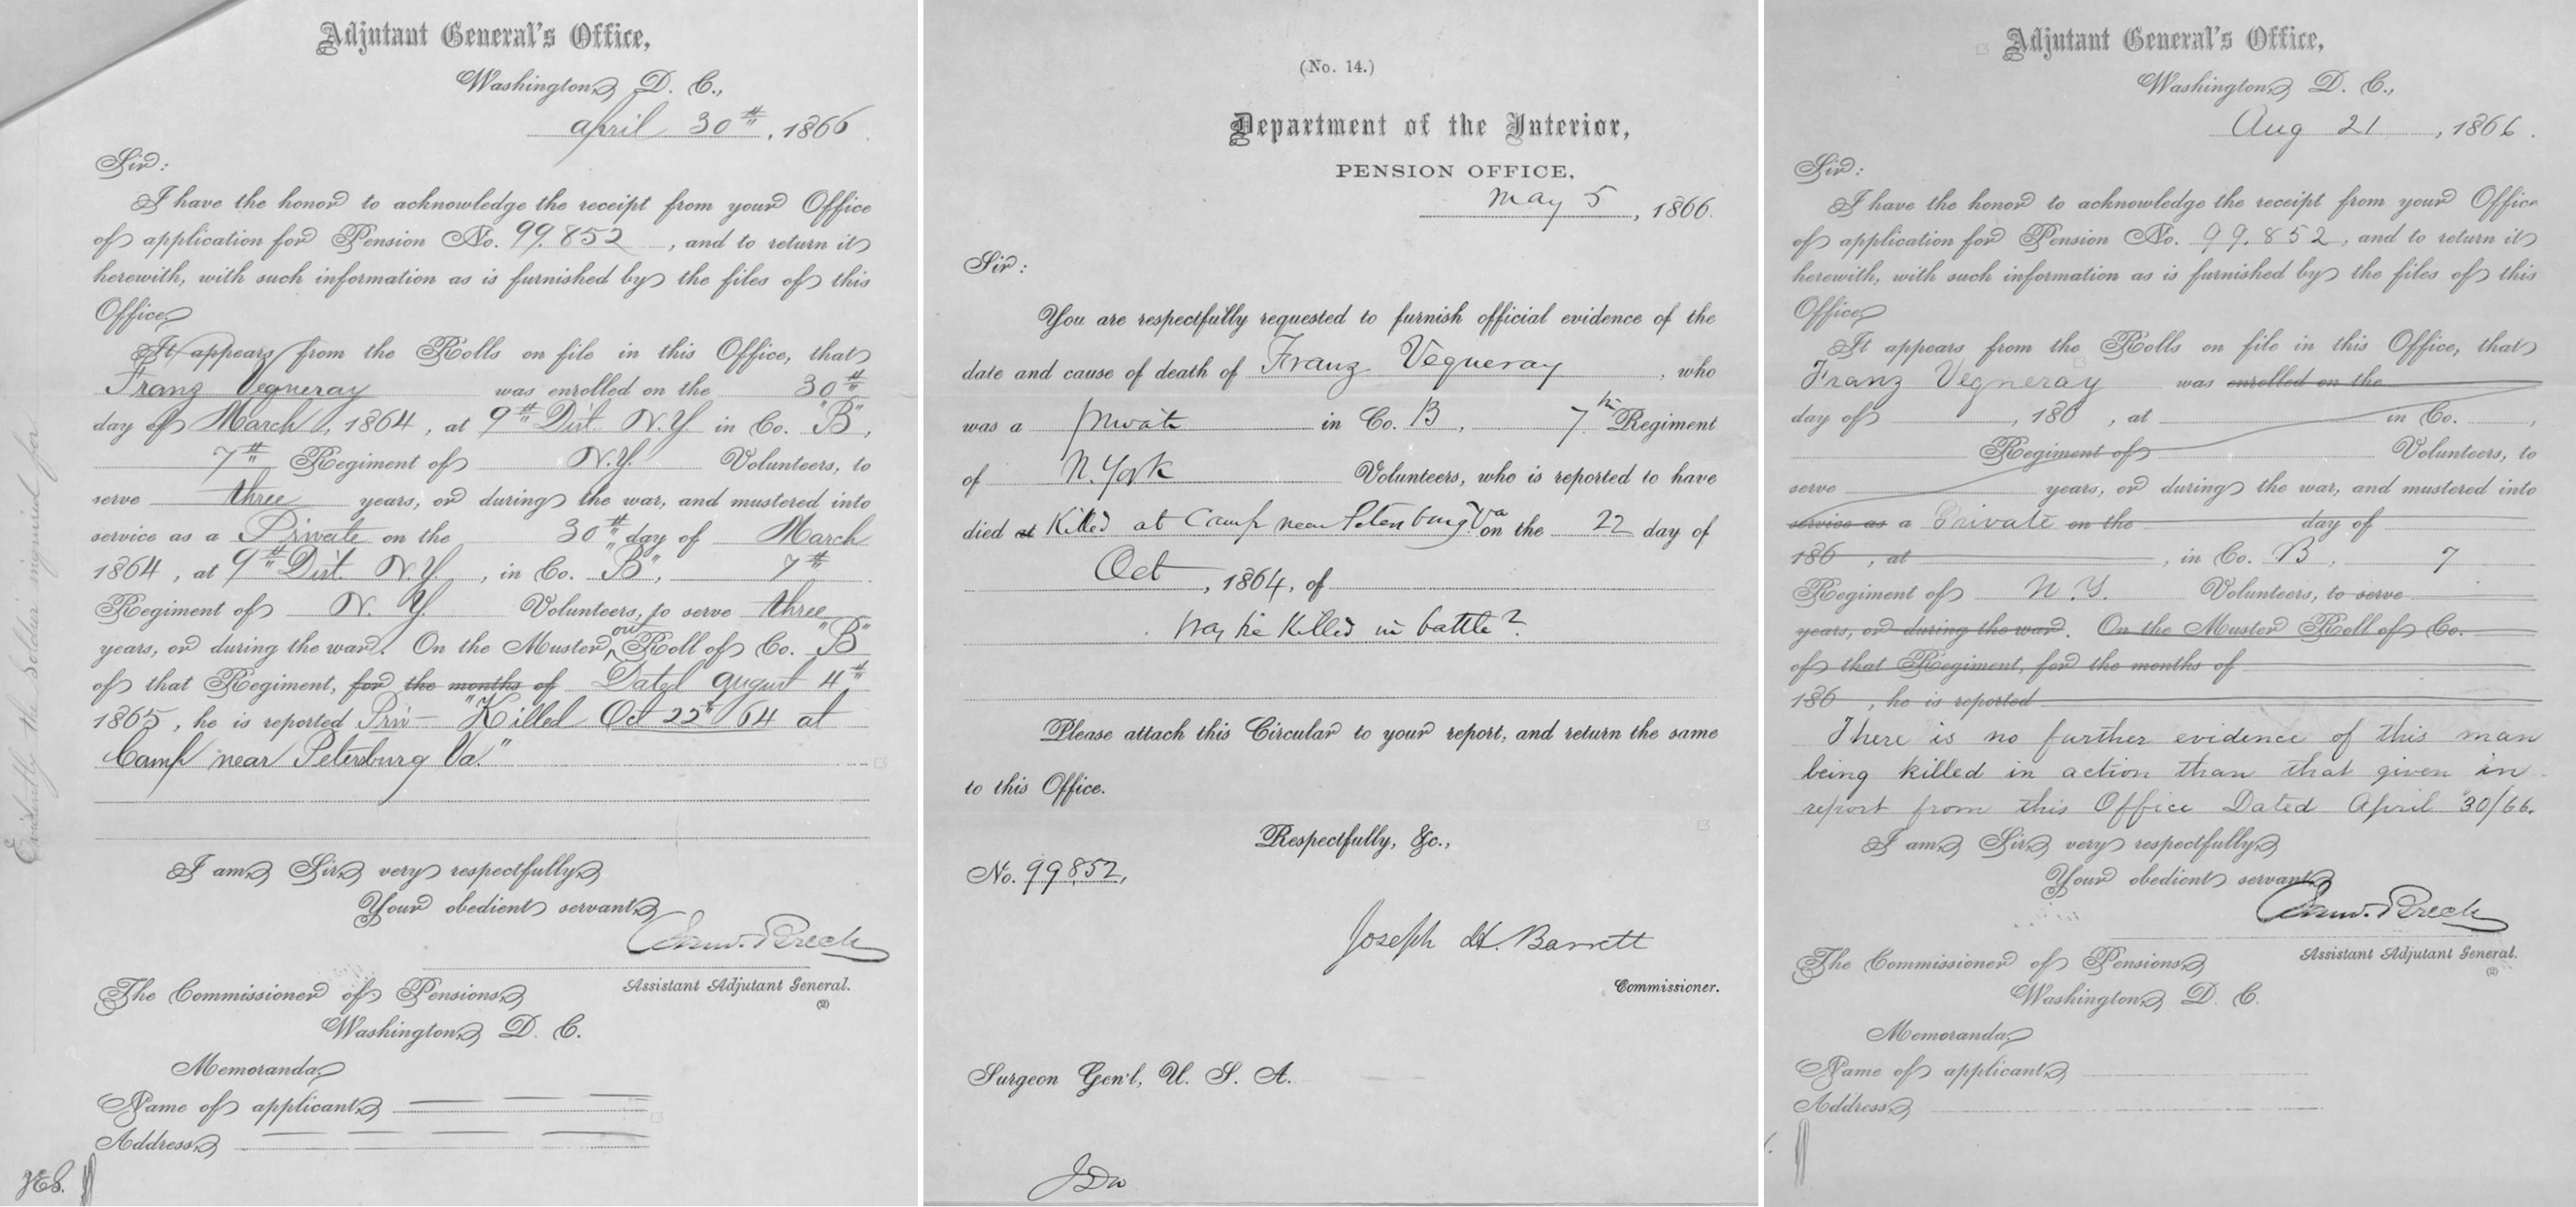 Adjutant General's Office,
Washington, D. C.,
April 30th, 1866
Sir:
I have the honor to acknowledge the receipt from your Office
of application for Pension No. 99.852, and to return it
herewith, with such information as is furnished by the files of this
Office.
It appears from the Rolls on file in this Office, that
Franz Vegneray was enrolled on the 30th
day of March, 1864, at 9th Dist. N.Y. in Co. "B",
7th Regiment of N.Y. Volunteers, to
serve three years, or during the war, and mustered into
service as a Private on the 30th day of March
1864, at 9th Dist. N.Y., in Co. "B", 7th
Regiment of N. Y. Volunteers, to serve three
years, or during the war. On the Muster out Roll of Co. "B"
of that Regiment, for the months of Dated August 4th
1865, he is reported Priv— "Killed Oct 22d /64 at
Camp near Petersburg Va."
I am, Sir, very respectfully,
Your obedient servant,
Saml. Breck
Assistant Adjutant General.
(2)
The Commissioner of Pensions,
Washington, D. C.
Memoranda.
Name of applicant,
Address,
Evidently the Soldier inquired for
(No. 14.)
Department of the Interior,
PENSION OFFICE,
May 5, 1866.
Sir:
You are respectfully requested to furnish official evidence of the
date and cause of death of Franz Vegueray, who
was a private in Co. B, 7th Regiment
of N. York Volunteers, who is reported to have
died at Killed at Camp near Petersburg Va on the 22 day of
Oct, 1864, of
Was he Killed in battle?
Please attach this Circular to your report, and return the same
to this Office.
Respectfully, &c.,
No. 99852,
Joseph H. Barrett
Commissioner.
Surgeon Gen'l, U. S. A.
Adjutant General's Office,
Washington, D. C.,
Aug 21, 1866.
Sir:
I have the honor to acknowledge the receipt from your Office
of application for Pension No. 99.852, and to return it
herewith, with such information as is furnished by the files of this
Office.
It appears from the Rolls on file in this Office, that
Franz Vegneray was enrolled on the
day of , 186 , at in Co. ,
Regiment of Volunteers, to
serve years, or during the war, and mustered into
service as a Private on the day of
186 , at , in Co. B, 7
Regiment of N.Y. Volunteers, to serve
years, or during the war. On the Muster Roll of Co.
of that Regiment, for the months of
186 , he is reported
There is no further evidence of this man
being killed in action than that given in
report from this Office Dated April 30/66.
I am, Sir, very respectfully,
Your obedient servant,
Saml. Breck
Assistant Adjutant General.
(2)
The Commissioner of Pensions,
Washington, D. C.
Memoranda.
Name of applicant,
Address,